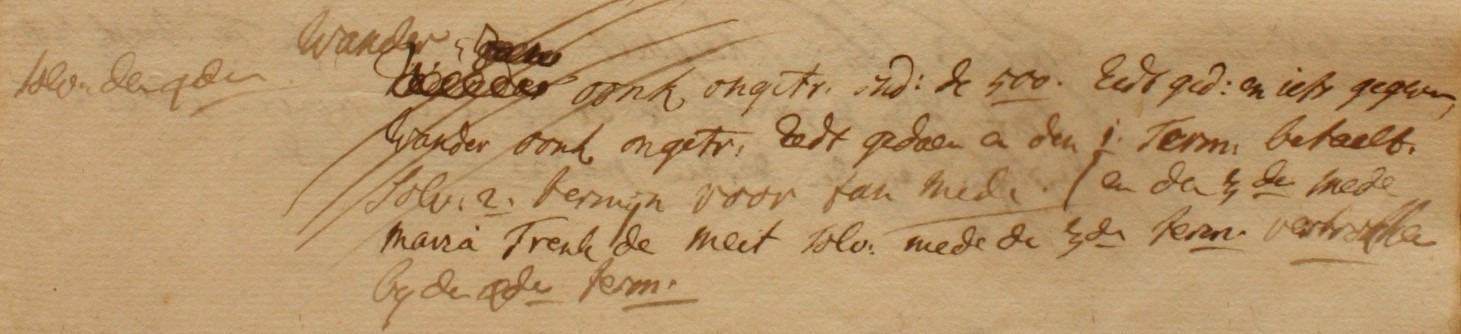 Wander
solv. den 4den
oonk ongetr. ind: de 500. Eedt ged: en iets gegeven,
Wander oonk ongetr. Eedt gedaen en den 1. Term. betaelt.
Solv. 2. termijn voor Jan mede. en de 3de mede
maria Frenk de meit solv. mede de 3de term. vertrocken
by den 4den term.